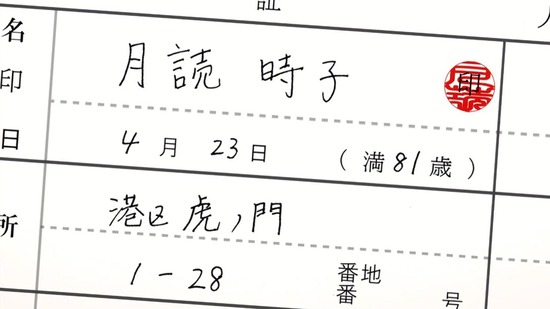 証
名 月読 時子
印 印
日 4月 23日 (満81歳)
所 港区虎ノ門
1-28 番地
番 号